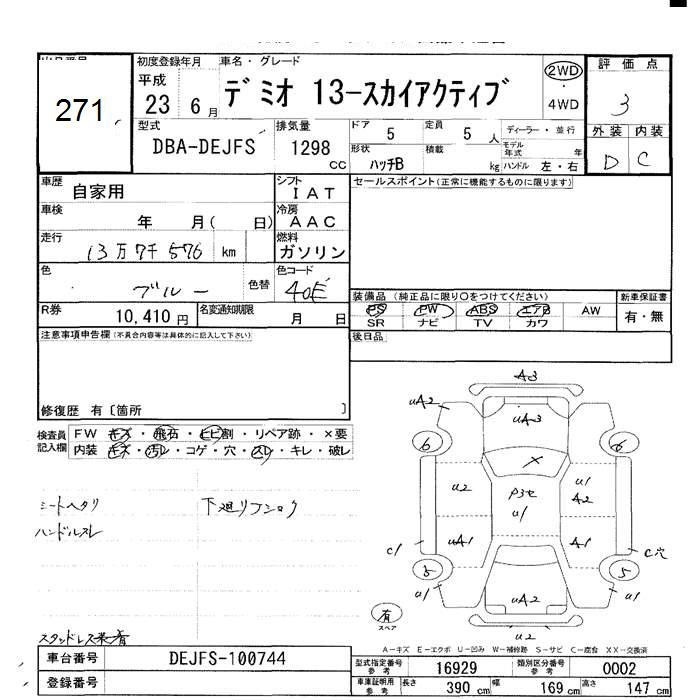 271
初度登録年月 車名・グレード 評価点
平成 23 6月 デミオ 13-スカイアクティブ 2WD ・ 4WD 3
型式 排気量 ドア 定員 ディーラー・並行 外装 内装
DBA-DEJFS 1298 CC 5 5人 モデル年式 年 D C
形状 積載
ハッチB kg ハンドル 左・右
車歴 自家用 シフト IAT セールスポイント(正常に機能するものに限ります)
車検 年 月( 日) 冷房 AAC
走行 13万7千576 km 燃料 ガソリン
色 ブルー 色替 色コード 40E
装備品(純正品に限り○をつけてください) 新車保証書
R券 10,410円 名変通知期限 月 日
PS PW ABS エアB AW 有・無
SR ナビ TV カワ
注意事項申告欄(不具合内容等は具体的に記入して下さい) 後日品
修復歴 有〔箇所 〕
検査員記入欄 FW キズ・飛石・ヒビ割・リペア跡・×要
内装 キズ・汚レ・コゲ・穴・スレ・キレ・破レ
シートヘタリ 下廻リフンロク
ハンドルスレ
A3
uA2 uA3
6 6
X
u2 P3セ u1 u1 A2
uA1 A1
C1 C穴
5 5
uA1 uA2
有 スペア
u2
スタンドレス
A-キズ E-エクボ U-凹み W-補修跡 S-サビ C-腐食 XX-交換済
車台番号 DEJFS-100744
型式指定番号 参考 16929 類別区分番号 参考 0002
登録番号
車庫証明用 参考 長さ 390 cm 幅 169 cm 高さ 147 cm